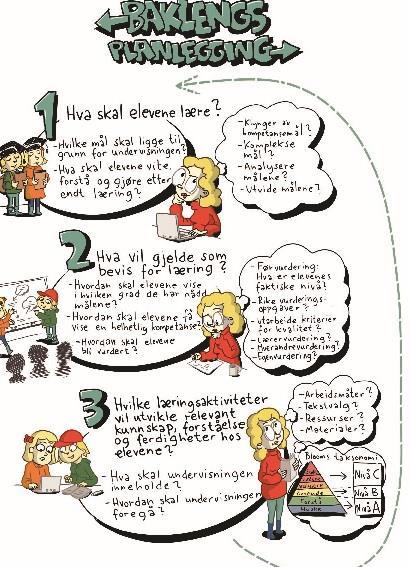 BAKLENGS
PLANLEGGING
1 Hva skal elevene lære?
-Hvilke mål skal ligge til
grunn for undervisningen?
-Hva skal elevene vite,
forstå og gjøre etter
endt læring?
-Klynger av
kompetansemål?
-Komplekse
mål?
-Analysere
målene?
-Utvide målene?
2 Hva vil gjelde som
bevis for læring?
-Hvordan skal elevene vise
i hvilken grad de har nådd
målene?
-Hvordan skal elevene få
vise en helhetlig kompetanse?
-Hvordan skal elevene
bli vurdert?
-Før vurdering:
Hva er elevenes
faktiske nivå?
-Rike vurderings-
oppgaver?
-utarbeide kriterier
for kvalitet?
-Lærervurdering?
-Hverandrevurdering?
-Egenvurdering?
3 Hvilke læringsaktiviteter
vil utvikle relevant
kunnskap, forståelse
og ferdigheter hos
elevene?
-Hva skal undervisningen
inneholde?
-Hvordan skal undervisningen
foregå?
-Arbeidsmåter?
-Tekstvalg?
-Ressurser?
-Materialer?
Blooms taksonomi
Nivå C
Nivå B
Nivå A
Forstå
Huske